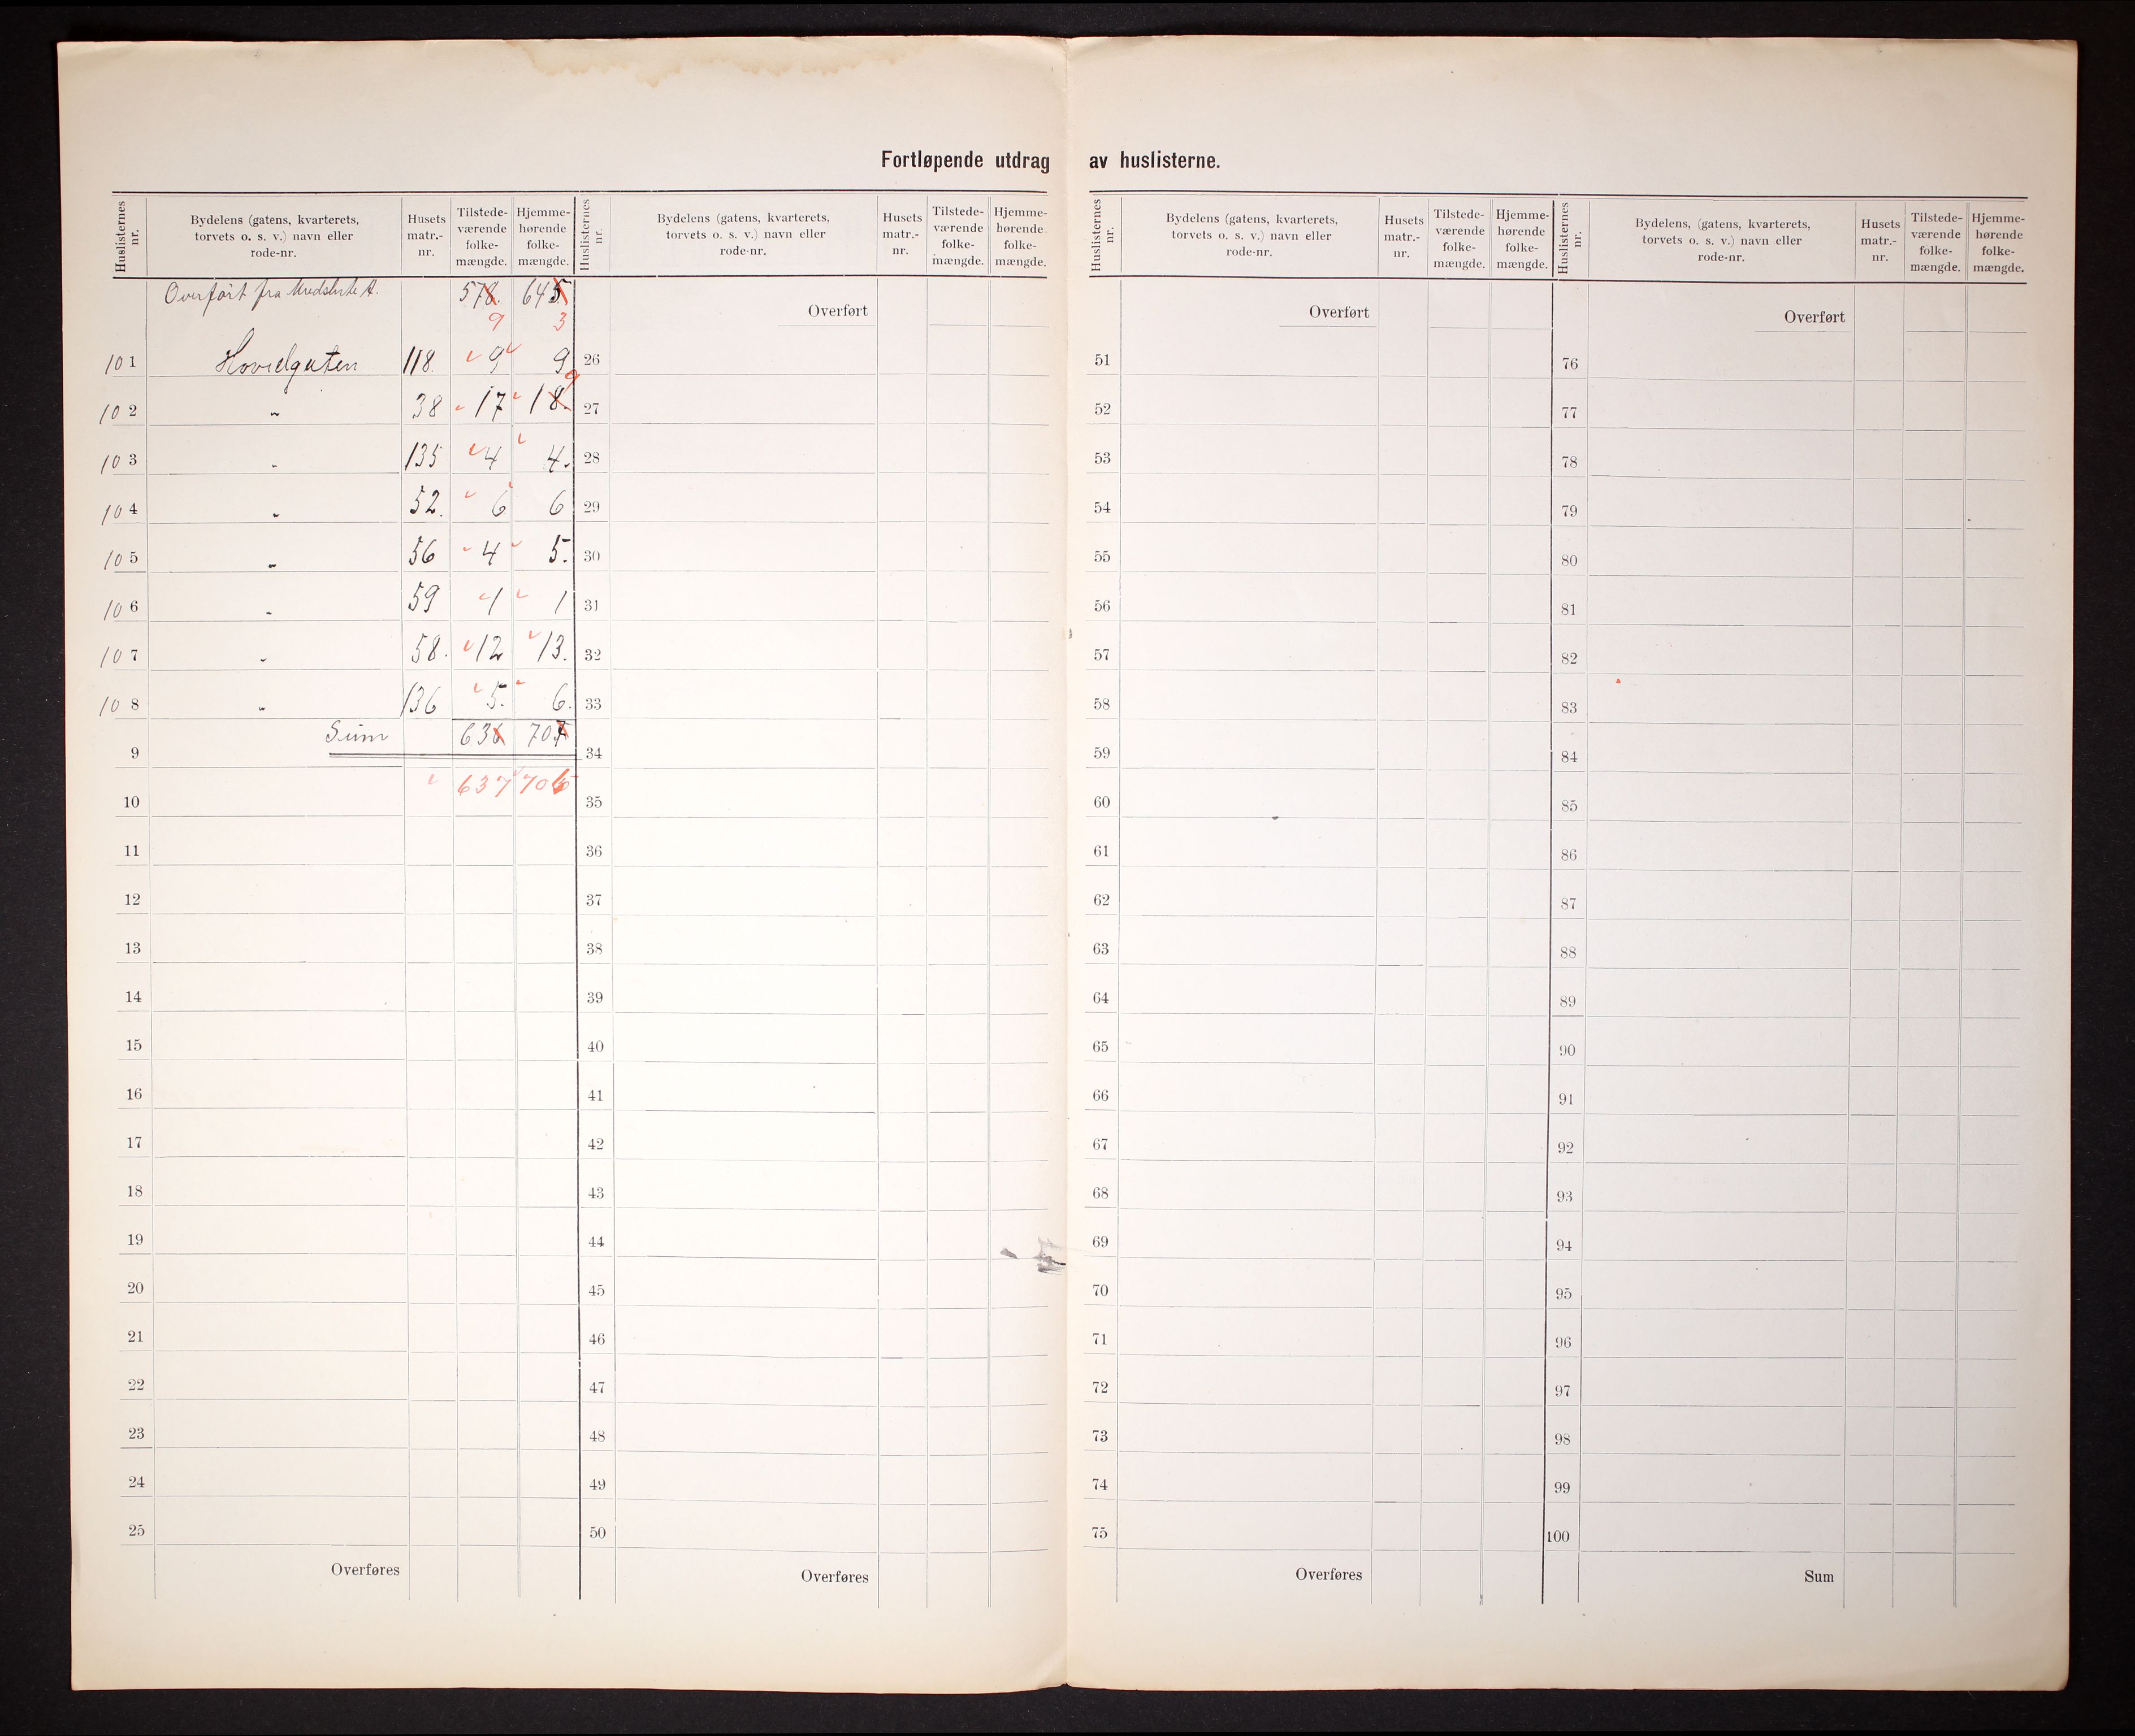 Fortløpende utdrag av huslisterne.
Huslisternes nr. | Bydelens (gatens, kvarterets, torvets o. s. v.) navn eller rode-nr. | Husets matr.-nr. | Tilstede-værende folke-mængde. | Hjemme-hørende folke-mængde.
Overført fra A. | 578. 9 | 645 3
101 Hovedgaten 118. 9 9
102 " 38 17 18. 9
103 " 135 4 4.
104 " 52. 6 6
105 " 56 4 5.
106 " 59 1 1
107 " 58. 12 13.
108 " 136 5. 6.
Sum 636 707
9
637 706
10
11
12
13
14
15
16
17
18
19
20
21
22
23
24
25
Overføres
Huslisternes nr. | Bydelens (gatens, kvarterets, torvets o. s. v.) navn eller rode-nr. | Husets matr.-nr. | Tilstede-værende folke-mængde. | Hjemme-hørende folke-mængde.
Overført
26
27
28
29
30
31
32
33
34
35
36
37
38
39
40
41
42
43
44
45
46
47
48
49
50
Overføres
Huslisternes nr. | Bydelens (gatens, kvarterets, torvets o. s. v.) navn eller rode-nr. | Husets matr.-nr. | Tilstede-værende folke-mængde. | Hjemme-hørende folke-mængde.
Overført
51
52
53
54
55
56
57
58
59
60
61
62
63
64
65
66
67
68
69
70
71
72
73
74
75
Overføres
Huslisternes nr. | Bydelens, (gatens, kvarterets, torvets o. s. v.) navn eller rode-nr. | Husets matr.-nr. | Tilstede-værende folke-mængde. | Hjemme-hørende folke-mængde.
Overført
76
77
78
79
80
81
82
83
84
85
86
87
88
89
90
91
92
93
94
95
96
97
98
99
100
Sum